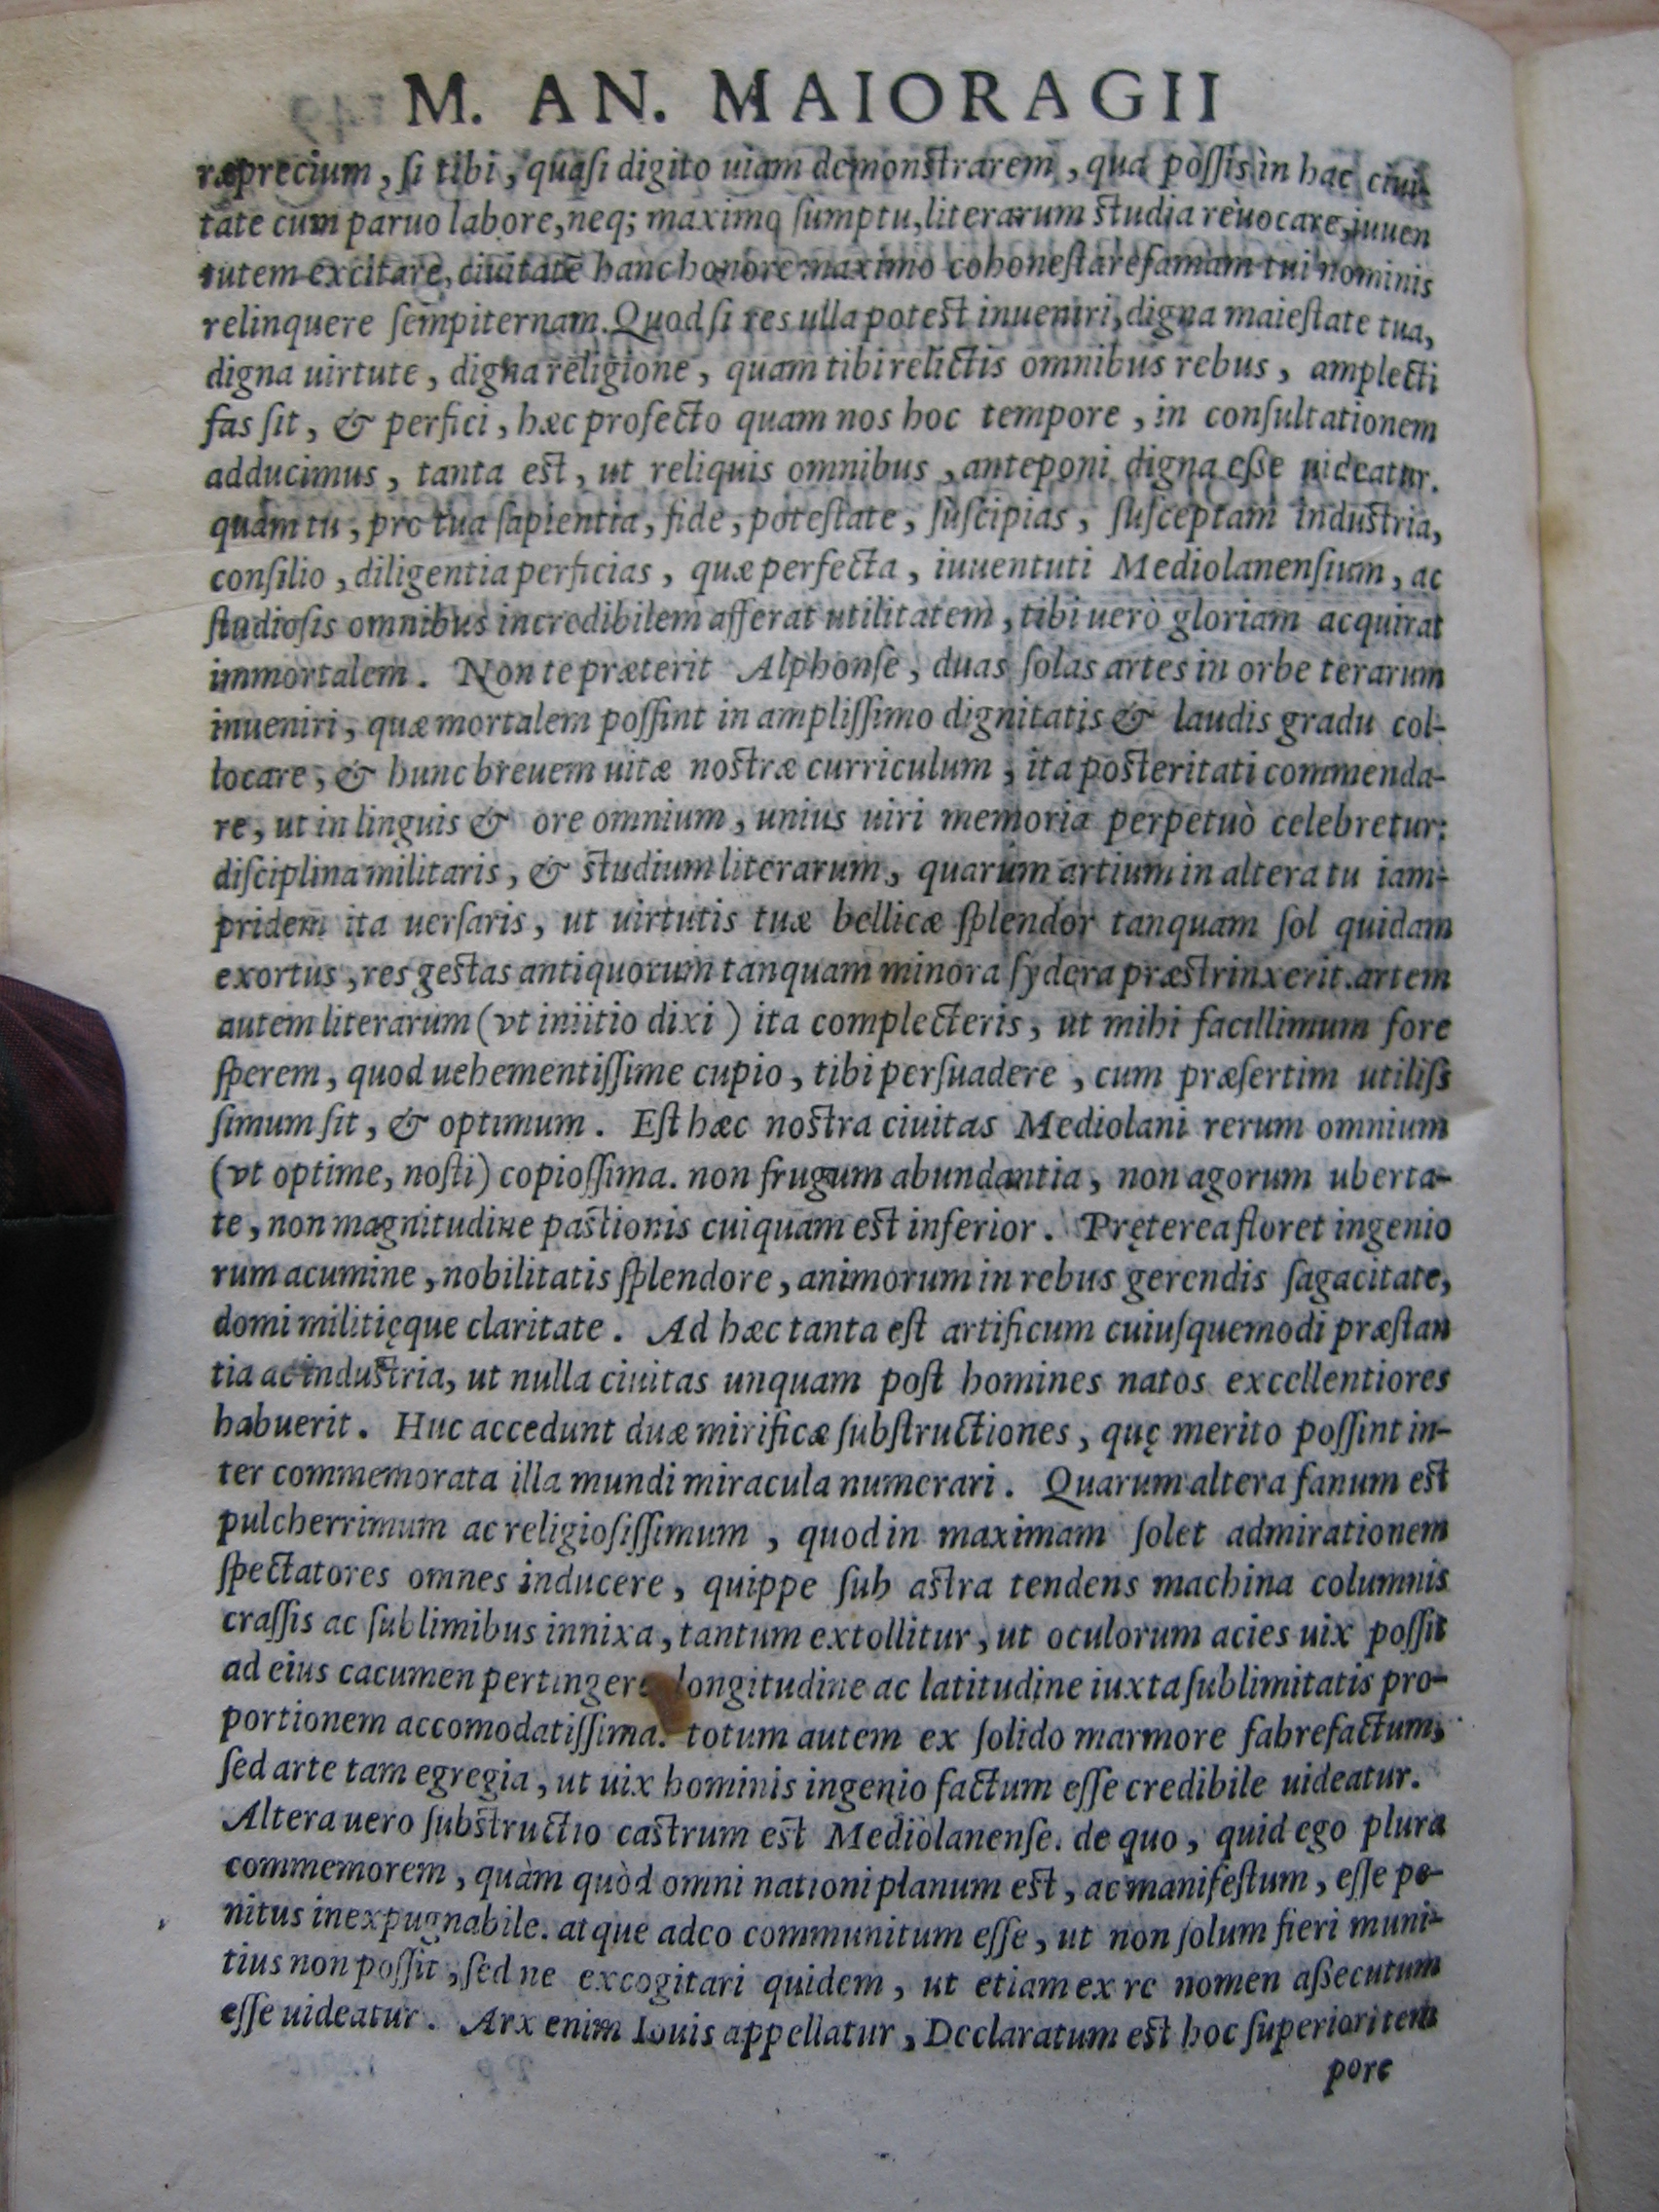 M. AN. MAIORAGII
ræprecium, si tibi, quasi digito uiam demonstrarem, qua possis in hac ciui-
tate cum paruo labore, neq; maximo sumptu, literarum studia reuocare, iuuen
tutem excitare, ciuitatē hanc honore maximo cohonestare famam tui nominis
relinquere sempiternam. Quod si res ulla potest inueniri, digna maiestate tua,
digna uirtute, digna religione, quam tibi relictis omnibus rebus, amplecti
fas sit, & perfici, hæc profecto quam nos hoc tempore, in consultationem
adducimus, tanta est, ut reliquis omnibus, anteponi digna esse uideatur.
quam tu, pro tua sapientia, fide, potestate, suscipias, susceptam industria,
consilio, diligentia perficias, quæ perfecta, iuuentuti Mediolanensium, ac
studiosis omnibus incredibilem afferat utilitatem, tibi uerò gloriam acquirat
immortalem. Non te præterit Alphonse, duas solas artes in orbe terarum
inueniri, quæ mortalem possint in amplissimo dignitatis & laudis gradu col-
locare, & hunc breuem uitæ nostræ curriculum, ita posteritati commenda-
re, ut in linguis & ore omnium, unius uiri memoria perpetuò celebretur:
disciplina militaris, & studium literarum, quarum artium in altera tu iam-
pridem ita uersaris, ut uirtutis tuæ bellicæ splendor tanquam sol quidam
exortus, res gestas antiquorum tanquam minora sydera præstrinxerit. artem
autem literarum (vt iniitio dixi) ita complecteris, ut mihi facillimum fore
sperem, quod uehementissime cupio, tibi persuadere, cum præsertim utiliss
simum sit, & optimum. Est hæc nostra ciuitas Mediolani rerum omnium
(vt optime, nosti) copiossima. non frugum abundantia, non agorum uberta-
te, non magnitudine pastionis cuiquam est inferior. Pręterea floret ingenio
rum acumine, nobilitatis splendore, animorum in rebus gerendis sagacitate,
domi militięque claritate. Ad hæc tanta est artificum cuiusquemodi præstan
tia ac industria, ut nulla ciuitas unquam post homines natos excellentiores
habuerit. Huc accedunt duæ mirificæ substructiones, quę merito possint in-
ter commemorata illa mundi miracula numerari. Quarum altera fanum est
pulcherrimum ac religiosissimum, quod in maximam solet admirationem
spectatores omnes inducere, quippe sub astra tendens machina columnis
crassis ac sublimibus innixa, tantum extollitur, ut oculorum acies uix possit
ad eius cacumen pertingere longitudine ac latitudine iuxta sublimitatis pro-
portionem accomodatissima. totum autem ex solido marmore fabrefactum,
sed arte tam egregia, ut uix hominis ingenio factum esse credibile uideatur.
Altera uero substructio castrum est Mediolanense. de quo, quid ego plura
commemorem, quàm quòd omni nationi planum est, ac manifestum, esse pe-
nitus inexpugnabile. atque adeo communitum esse, ut non solum fieri muni-
tius non possit, sed ne excogitari quidem, ut etiam ex re nomen assecutum
esse uideatur. Arx enim Iouis appellatur, Declaratum est hoc superiori tem
pore